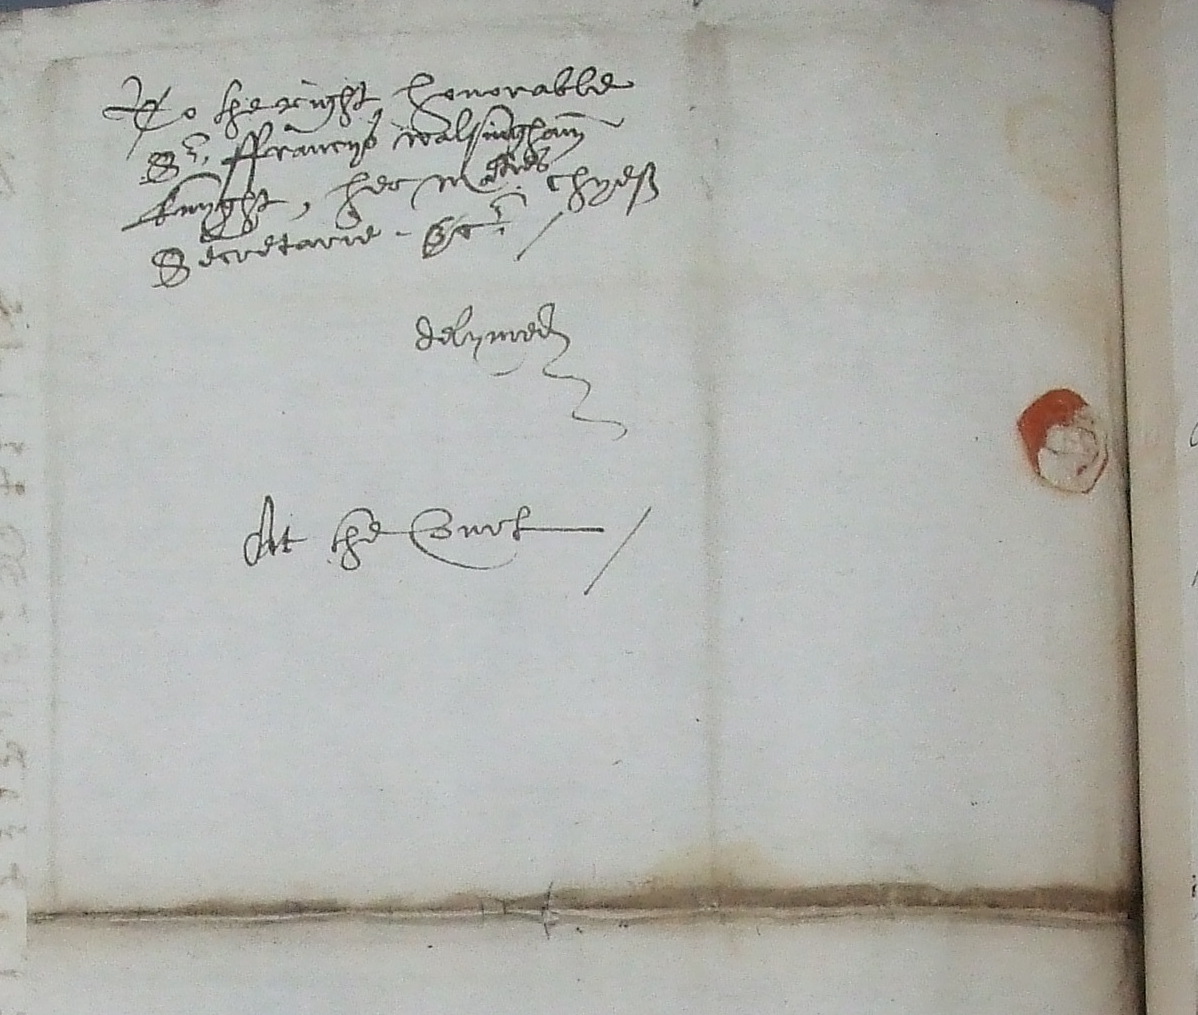 To the right honorable
Sr. ffrancys walsingham
knyght, her Maties chyeff
Secretarie - &cr. /
At the Court /